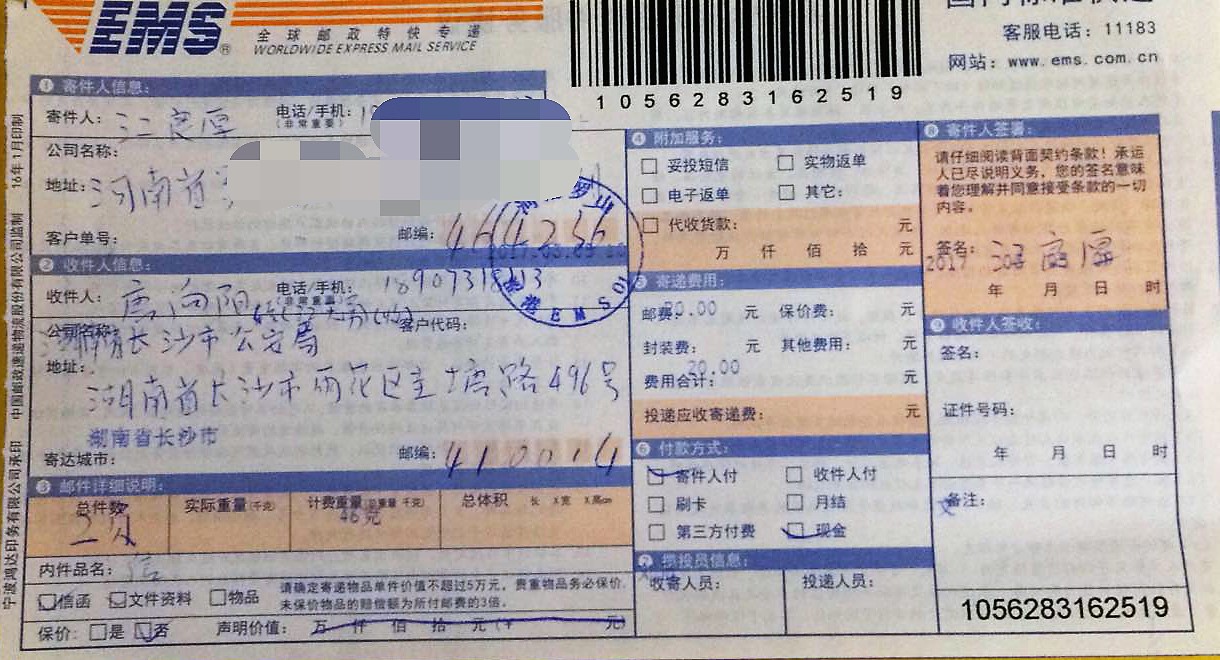 EMS 全球邮政特快专递
WORLDWIDE EXPRESS MAIL SERVICE
客服电话：11183
网站：www.ems.com.cn
1056283162519
16年1月印制
中国邮政速递物流股份有限公司监制
宁波鸿达印务有限公司承印
① 寄件人信息：
寄件人：
电话/手机：
（非常重要）
公司名称：
地址：河南省
客户单号：
邮编：464236
② 收件人信息：
收件人：唐向阳
电话/手机：
（非常重要）
公司名称：
客户代码：
长沙市公安局
地址：
湖南省长沙市雨花区圭塘路496号
湖南省长沙市
寄达城市：
邮编：410014
③ 邮件详细说明：
总件数
实际重量（千克）
计费重量（千克）
总体积 长 X宽 X高cm
46克
内件品名：信
信函 文件资料 物品
请确定寄递物品单件价值不超过5万元，贵重物品务必保价，
未保价物品的赔偿额为所付邮费的3倍。
保价：是 否 声明价值：万 仟 佰 拾 元（￥ 元）
④ 附加服务：
妥投短信 实物返单
电子返单 其它：
代收货款： 元
万 仟 佰 拾 元
寄递费用：
邮费：20.00 元 保价费： 元
封装费： 元 其他费用： 元
20.00
费用合计： 元
投递应收寄递费： 元
⑥ 付款方式：
寄件人付 收件人付
刷卡 月结
第三方付费 现金
⑦ 揽投员信息：
收寄人员： 投递人员：
⑧ 寄件人签署：
请仔细阅读背面契约条款！承运
人已尽说明义务，您的签名意味
着您理解并同意接受条款的一切
内容。
签名：
2017
年 月 日 时
⑨ 收件人签收：
签名：
证件号码：
年 月 日 时
备注：
1056283162519